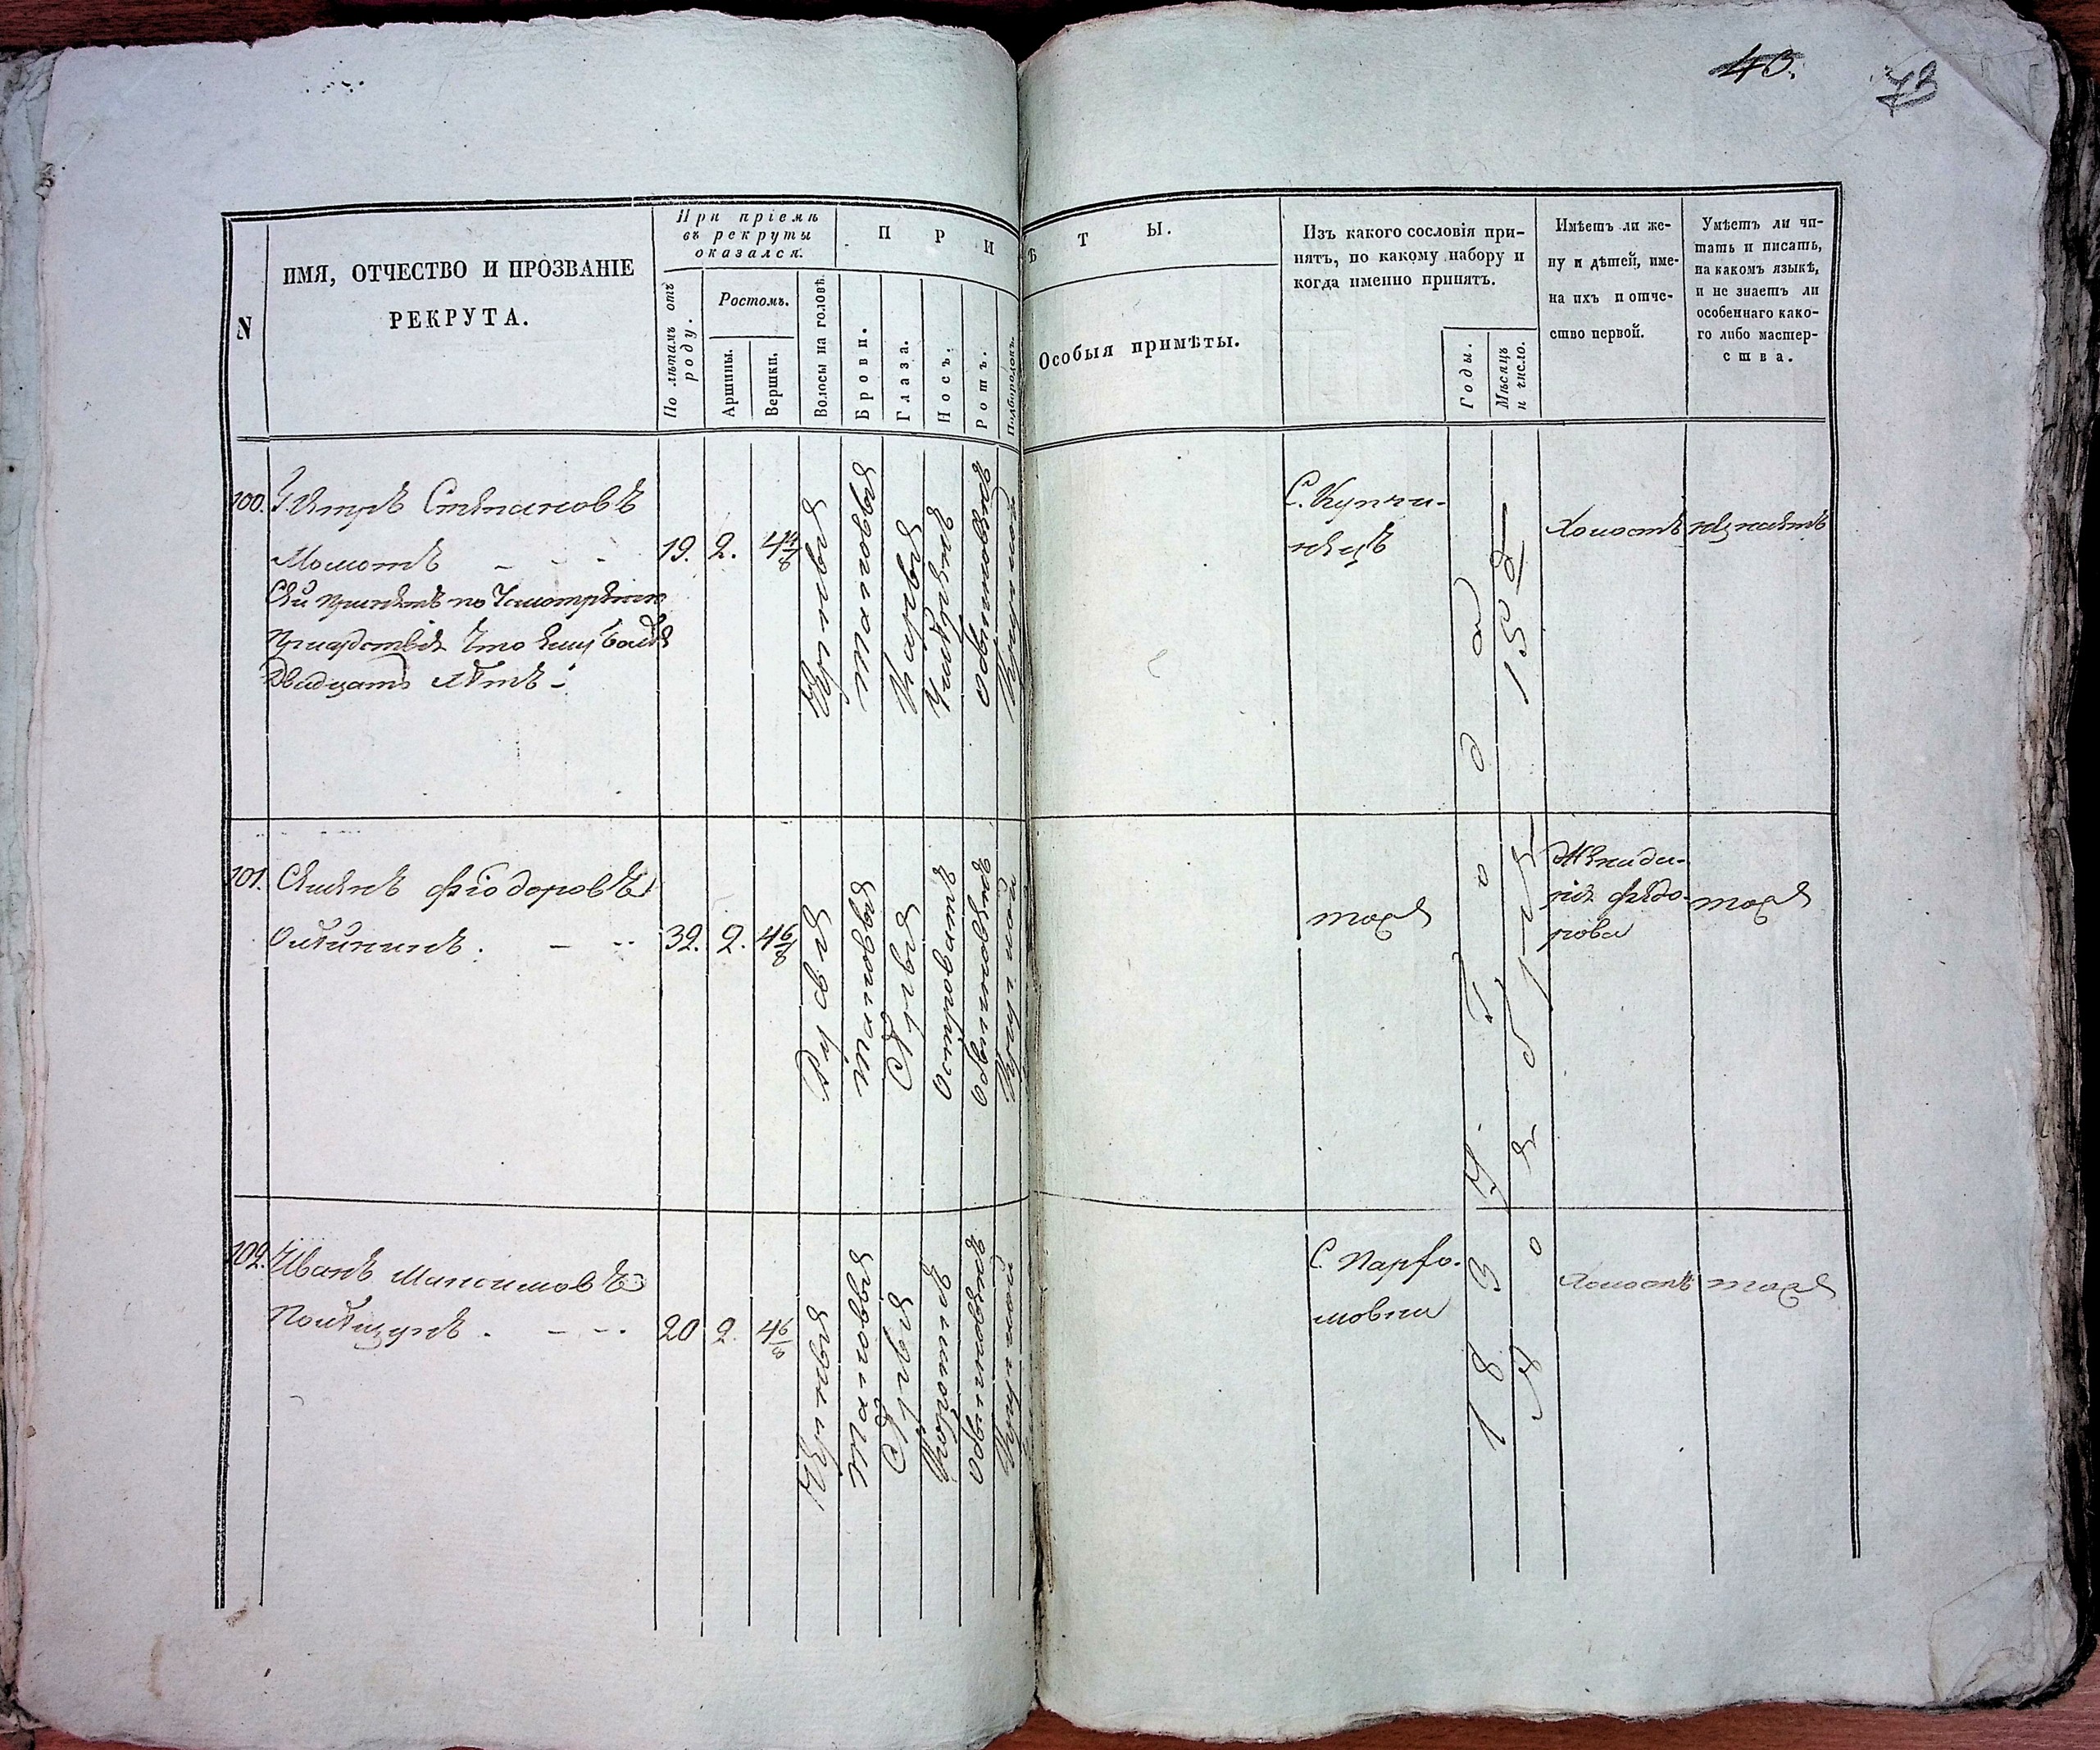 43.
72
N
ИМЯ, ОТЧЕСТВО И ПРОЗВАНІЕ
РЕКРУТА.
При пріемѣ
въ рекруты
оказался.
По лѣтамъ отъ
роду.
Ростомъ.
Аршины.
Вершки.
ПРИ
Волосы на головѣ.
Брови.
Глаза.
Носъ.
Ротъ.
Подбородокъ.
ѢТЫ.
Особыя примѣты.
Изъ какого сословія при-
нятъ, по какому набору и
когда именно принятъ.
Годы.
Мѣсяцъ
и число.
Имѣетъ ли же-
ну и дѣтей, име-
на ихъ и отче-
ство первой.
Умѣетъ ли чи-
тать и писать,
на какомъ языкѣ,
и не знаетъ ли
особеннаго како-
го либо мастер-
ства.
100. Петръ Степановъ
Момотъ 19. 2. 4 4/8
Сей принятъ по усмотрѣнію
Присутствія что ему болѣе
Двадцати лѣтъ
Черныя
Каріе
Умѣренный
обыкновенъ
Круглой
С. Купчи-
нецъ
Холостъ
незнаетъ
101. Семенъ Фіодоровъ
Олѣйникъ. 32. 2. 4 6/8
Русыя
темнорусыя
Сѣрыя
Островатъ
Обыкновенъ
Круглой
тоже
Жена Ди-
Федо-
рова
тоже
102. Иванъ Максимовъ
Полѣщукъ. 20 2. 4 6/8
Черныя
Сѣрыя
обыкновенъ
Круглой
С. Парфо-
мовки
Холостъ
тоже
1834. Года
15